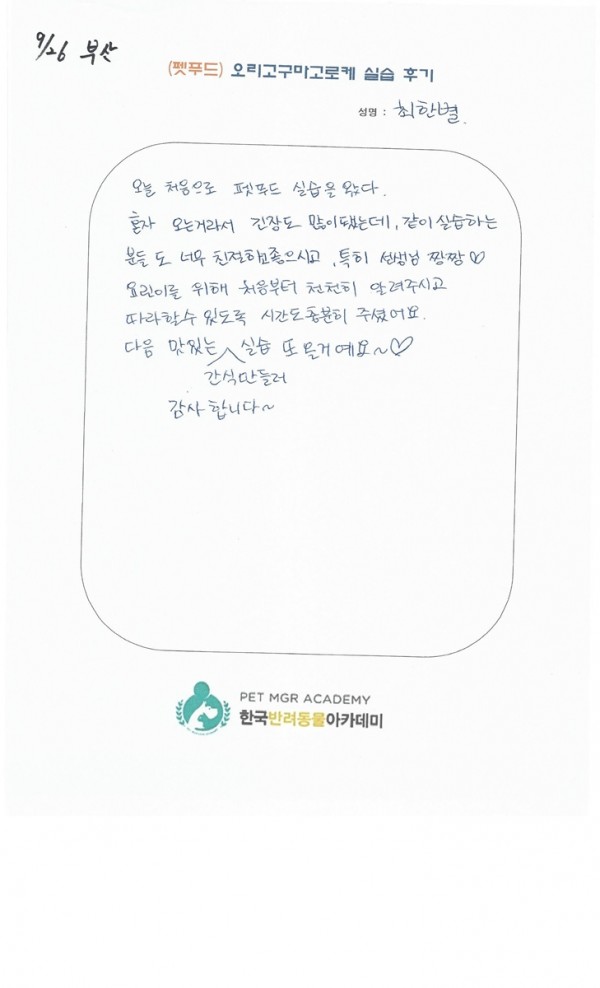 9/26 부산
(펫푸드) 오리고구마고로케 실습 후기
성명 : 최한별
오늘 처음으로 펫푸드 실습을 왔다.
혼자 오는거라서 긴장도 많이됐는데, 같이 실습하는
분들 도 너무 친절하고좋으시고, 특히 선생님 짱짱♡
요린이를 위해 처음부터 천천히 알려주시고
따라할수 있도록 시간도충분히 주셨어요.
다음 맛있는 실습 또 올거예요~♡
간식만들러
감사합니다~
PET MGR ACADEMY
한국반려동물아카데미